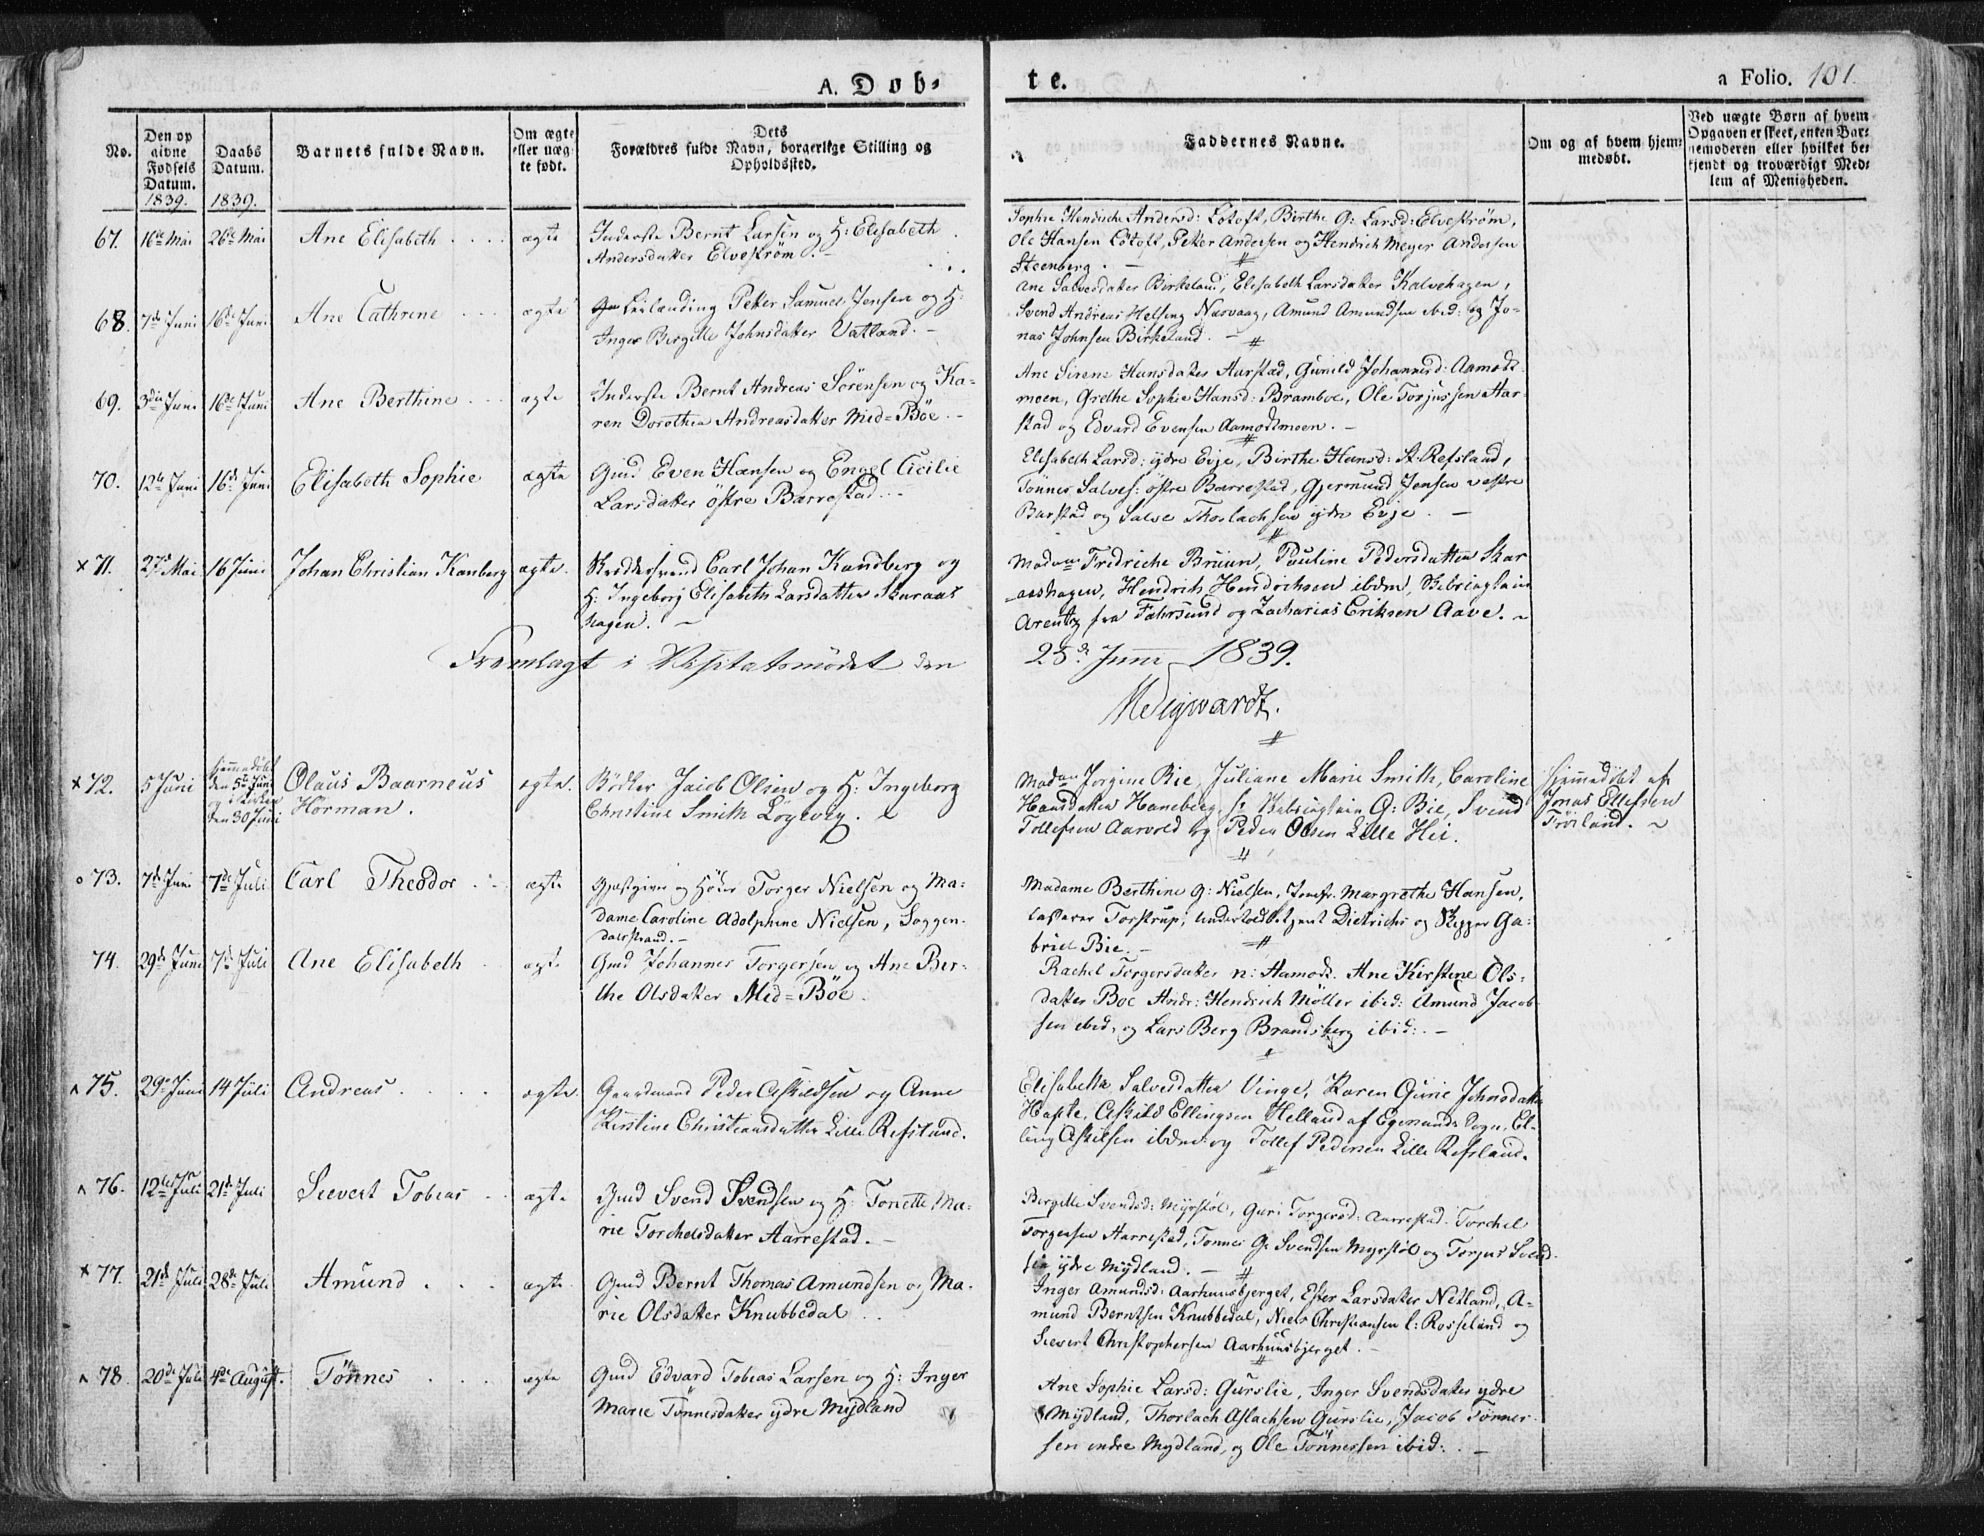 A. Dob-
te.
a Folio. 101.
No.
Den op
givne
Fødsels
Datum.
1839.
Daabs
Datum.
1839.
Barnets fulde Navn.
Om ægte
eller uæg-
te født.
Dets
Forældres fulde Navn, borgerlige Stilling og
Opholdssted.
Faddernes Navne.
Om og af hvem hjem-
medøbt.
Ved uægte Børn af hvem
Opgaven er skeet, enten Bar-
nemoderen eller hvilket be-
kjendt og troværdigt Med-
lem af Menigheden.
67. 16de Mai 26de Mai Ane Elisabeth ægte
Inderste Bernt Larsen og H: Elisabeth
Andersdatter Elvestrøm.
Sophie Hendriche Andersd: Løtoft, Birthe G: Larsd: Elvestrøm,
Ole Hansen Løtoft, Peter Andersen og Hendrich Meyer Andersen
Steenberg.
68. 7de Juni 16de Juni Ane Cathrine ægte
Leilænding Peter Samuel Jensen og H:
Inger Birgitte Johnsdatter Vatland.
Ane Salvesdatter Birkeland, Elisabeth Larsdatter Kalvehagen,
Svend Andreas Helsing Narvaag, Amund Amundsen ibid: og Jo-
nas Johnsen Birkeland.
69. 3die Juni 16de Juni Ane Berthine ægte
Inderste Bernt Andreas Sørensen og Ka-
ren Dorothea Andreasdatter Mid=Böe.
Ane Sirene Hansdatter Aarstad, Gunild Johannesd: Aamodt-
moen, Grethe Sophie Hansd: Bramboe, Ole Torjussen Aar-
stad og Edvard Evensen Aamodtmoen.
70. 12te Juni 16de Juni Elisabeth Sophie ægte
Gmd Even Hansen og Engel Cicilie
Larsdatter östre Barrestad.
Elisabeth Larsd: ydre Evje, Birthe Hansd: St. Refsland,
Tönnes Salves: östre Barrestad, Gjermund Jensen vestre
Barstad og Salve Thorlachsen ydre Evje.
x 71. 27 Mai 16 Juni Johan Christian Kanberg ægte.
Skreddersvend Carl Johan Kandberg og
H: Ingeborg Elisabeth Larsdatter Skaraas
hagen.
Madam Fredriche Bruun, Pauline Pedersdatter Skar
aashagen, Hendrich Hendrichsen ibidem, Skibscaptain
Arentz fra Fahrsund og Zacharias Eriksen Aave.
Fremlagt i Visitatsmödet den
25de Juni 1839.
x 72. 5 Juni
hjemmedöbt
den 5te Juni
og i Kirken
den 30 Juni
Olaus Baarneus
Hörman.
ægte.
Bödker Jacob Olsen og H: Ingeborg
Christine Smith Lögevig.
Madam Jorgine Bie, Juliane Marie Smith, Caroline
Hansdatter Haneberg, Hr Skibscaptain G: Bie, Svend
Tollefsen Aarvold og Peder Olsen Lille Hei.
Hjemmedöbt af
Jonas Ellefsen
Tröiland.
o 73. 7de Juni 7de Juli Carl Theodor ægte
Gjæstgiver og Höker Torger Nielsen og Ma-
dame Caroline Adolphine Nielsen, Soggen-
dalsstrand.
Madame Berthine G: Nielsen, Jomfr. Margrethe Hansen,
Casserer Torstrup, undertoldbetjent Dietrichs og Skipper Ga-
briel Bie.
74. 29de Juni 7de Juli Ane Elisabeth ægte
Gmd Johannes Torgersen og Ane Ber-
the Olsdatter Mid=Böe.
Rachel Torgersdatter n: Aamodt. Ane Kirstine Ols-
datter Boe Andr: Hendrich Möller ibid: Amund Jacob-
sen ibid, og Lars Berg Brandsberg ibid:
75. 29 Juni 14 Juli Andreas ægte.
Gaardmand Peder Askildsen og Anne
Kirstine Christiansdatter Lille Refsland.
Elisabeth Salvesdatter Vinge, Karen Gurie Johnsdatter
Hafte, Askild Ellingsen Helland af Egersunds Sogn, El-
ling Askilsen ibidem og Tollef Pedersen Lille Refsland.
76. 12te Juli 21de Juli Sievert Tobias ægte
Gmd Svend Svendsen og H: Tonette Ma-
rie Torchelsdatter Aarrestad.
Birgitte Svendsd: Myrstöl, Guri Torgersd: Aarrestad. Torchel
Torgersen Aarrestad, Tönnes G: Svendsen Myrstöl og Torjus Svend-
sen ydre Mydland.
x 77. 21de Juli 28de Juli Amund ægte
Gmd Bernt Thomas Amundsen og Ma-
rie Olsdatter Knubbedal
Inger Amundsd: Aarhuusbjerget, Ester Larsdatter Netland, A-
mund Berntsen Knubbedal, Niels Christiansen l: Rosseland og
Sievert Christophersen Aarhuusbjerget.
78. 20de Juli 4de August. Tönnes ægte
Gmd Edvard Tobias Larsen og H: Inger
Marie Tönnesdatter ydre Mydland
Ane Sophie Larsd: Gurslie, Inger Svendsdatter ydre
Mydland, Thorlach Aslachsen Gurslie, Jacob Tönnes-
sen indre Mydland, og Ole Tönnessen ibid: